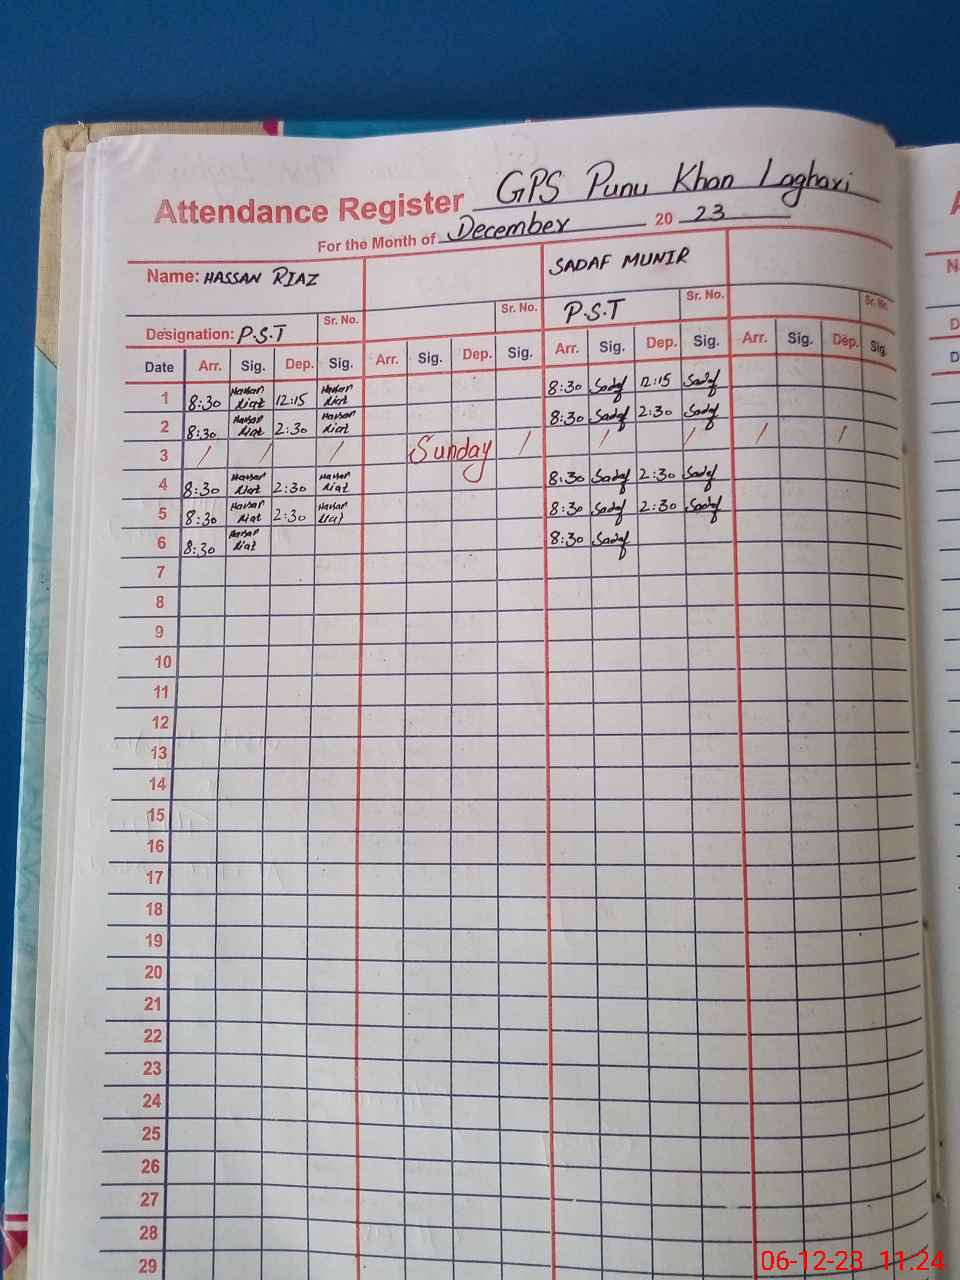 GPS Punu Khan Laghari
Attendance Register
For the Month of December 20 23
Name: HASSAN RIAZ SADAF MUNIR
Sr. No. Sr. No. Sr. No. Sr. No.
Designation: P.S.T P.S.T
Date Arr. Sig. Dep. Sig. Arr. Sig. Dep. Sig. Arr. Sig. Dep. Sig. Arr. Sig. Dep. Sig.
1 8:30 Hassan Riaz 12:15 Hassan Riaz 8:30 Sadaf 12:15 Sadaf
2 8:30 Hassan Riaz 2:30 Hassan Riaz 8:30 Sadaf 2:30 Sadaf
3 / / / Sunday / / / / /
4 8:30 Hassan Riaz 2:30 Hassan Riaz 8:30 Sadaf 2:30 Sadaf
5 8:30 Hassan Riaz 2:30 Hassan Riaz 8:30 Sadaf 2:30 Sadaf
6 8:30 Hassan Riaz 8:30 Sadaf
7
8
9
10
11
12
13
14
15
16
17
18
19
20
21
22
23
24
25
26
27
28
29
06-12-23 11:24